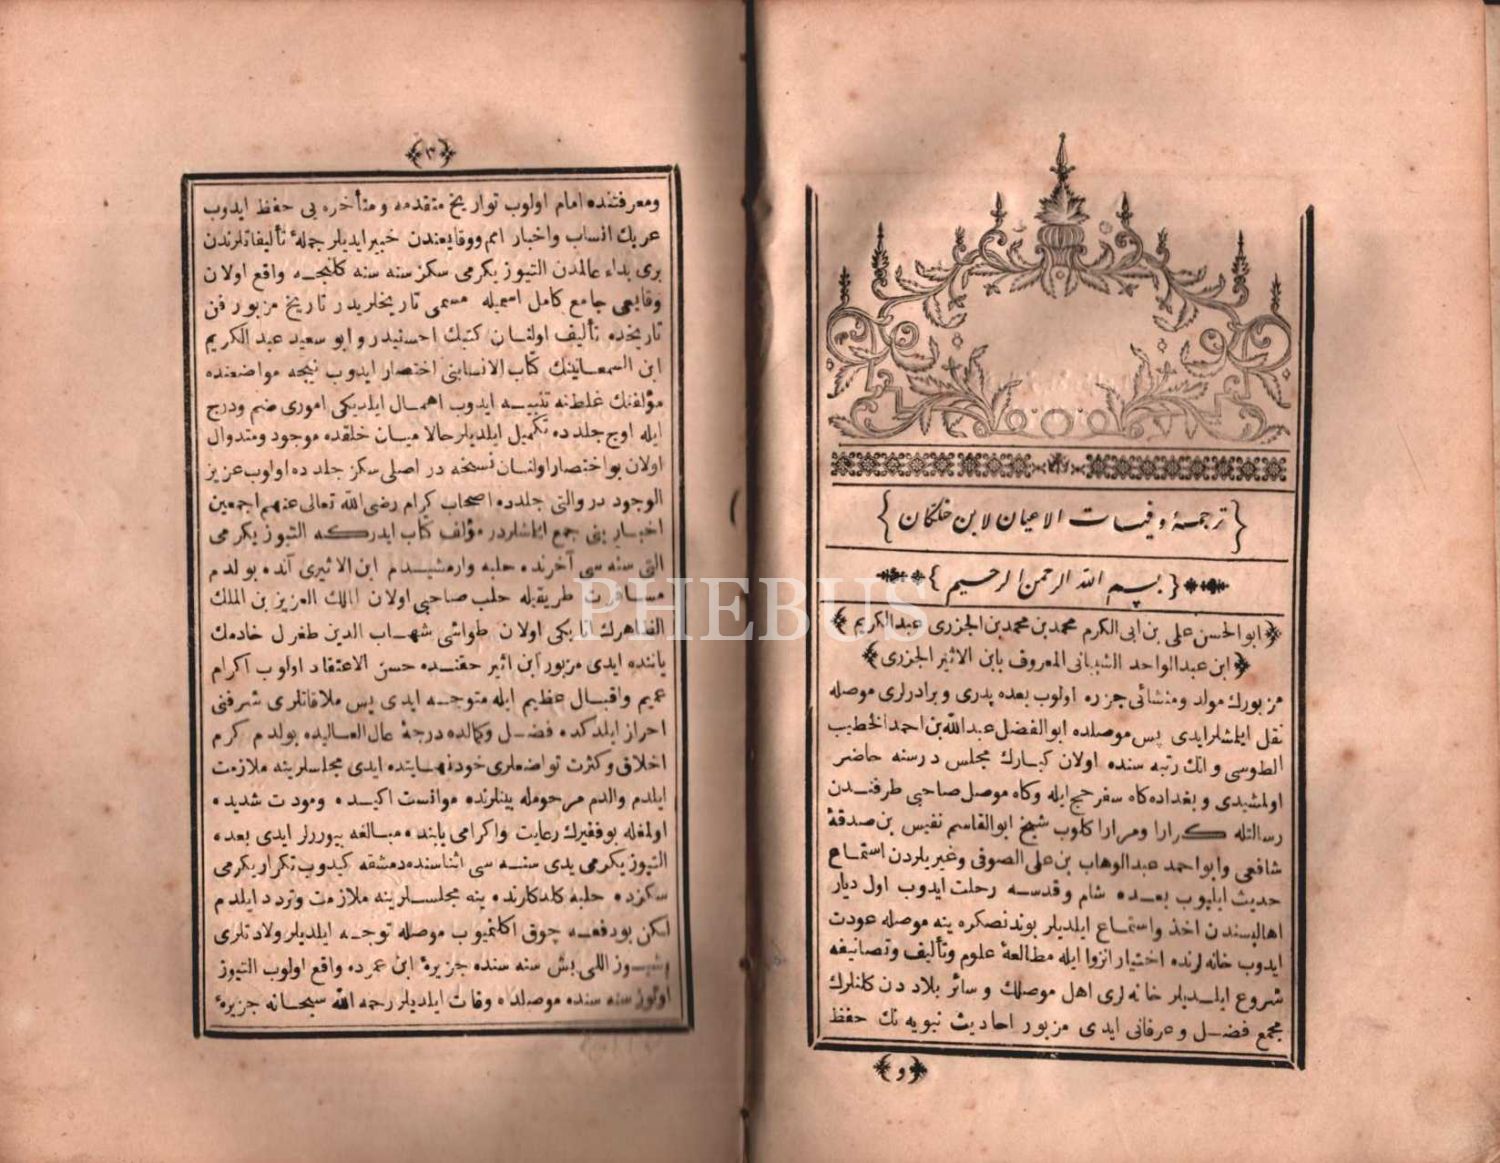 ﴿ ترجمهٔ وفيات الاعيان لابن خلكان ﴾
﴿ بسم الله الرحمن الرحيم ﴾
﴿ ابو الحسن على بن ابى الكرم محمد بن محمد بن الجزرى عبد الكريم ﴾
﴿ ابن عبد الواحد الشيبانى المعروف بابن الاثير الجزرى ﴾
مزبورك مولد ومنشائى جزره اولوب بعده پدرى و برادرلرى موصله
نقل ايلمشلر ايدى پس موصلده ابو الفضل عبد الله بن احمد الخطيب
الطوسى وانك رتبه سنده اولان كبارك مجلس درسنه حاضر
اولمشيدى و بغداده كاه سفر حج ايله وكاه موصل صاحبى طرفندن
رسالتله كرارا ومرارا كلوب شيخ ابو القاسم نفيس بن صدقهٔ
شافعى وابو احمد عبد الوهاب بن على الصوفى وغيريلردن استماع
حديث ايليوب بعده شام وقدسه رحلت ايدوب اول ديار
اهاليسندن اخذ واستماع ايلديلر بوندنصكره ينه موصله عودت
ايدوب خانه لرنده اختيار انزوا ايله مطالعهٔ علوم وتأليف وتصانيفه
شروع ايلديلر خانه لرى اهل موصلك و سائر بلاددن كلنلرك
مجمع فضل وعرفانى ايدى مزبور احاديث نبويه نك حفظ
و
﴿ ٣ ﴾
ومعرفتنده امام اولوب تواريخ متقدمه ومتأخره يى حفظ ايدوب
عربك انساب واخبار امم ووقايعندن خبير ايديلر جملهٔ تأليفاتلرندن
برى بداء عالمدن التيوز يكرمى سكز سنه سنه كلنجه واقع اولان
وقايعى جامع كامل اسميله مسمى تاريخلريدر تاريخ مزبور فن
تاريخده تأليف اولنان كتبك احسنيدر و ابو سعيد عبد الكريم
ابن السمعانينك كتاب الانسابنى اختصار ايدوب نيجه مواضعنده
مؤلفنك غلطنه تنبيه ايدوب اهمال ايلديكى امورى ضم ودرج
ايله اوچ جلدده تكميل ايلديلر حالا ميان خلقده موجود ومتداول
اولان بو اختصار اولنان نسخه در اصلى سكز جلدده اولوب عزيز
الوجوددر والتى جلدده اصحاب كرام رضى الله تعالى عنهم اجمعين
اخبارينى جمع ايلمشلردر مؤلف كتاب ايدركه التيوز يكرمى
التى سنه سى آخرنده حلبه وارمشيدم ابن الاثيرى آنده بولدم
مسافرت طريقيله حلب صاحبى اولان الملك العزيز بن الملك
الظاهرك اتابكى اولان طواشى شهاب الدين طغرل خادمك
ياننده ايدى مزبور ابن اثير حقنده حسن الاعتقاد اولوب اكرام
عميم واقبال عظيم ايله متوجه ايدى پس ملاقاتلرى شرفنى
احراز ايلدكده فضل وكمالده درجهٔ عال العاليده بولدم كرم
اخلاق وكثرت تواضعلرى خود نهايتده ايدى مجلسلرينه ملازمت
ايلدم والدم مرحومله بينلرنده موانست اكيده ومودت شديده
اولمغله بو فقيرك رعايت واكرامى يابنده مبالغه بيوررلر ايدى بعده
التيوز يكرمى يدى سنه سى اثناسنده دمشقه كيدوب تكرار يكرمى
سكزده حلبه كلدكلرنده ينه مجلسلرينه ملازمت وتردد ايلدم
لكن بو دفعه چوق اكلنميوب موصله توجه ايلديلر ولادتلرى
بشيوز اللى بش سنه سنده جزيرهٔ ابن عمرده واقع اولوب التيوز
اوتوز سنه سنده موصلده وفات ايلديلر رحمه الله سبحانه جزيرهٔ
PHEBUS